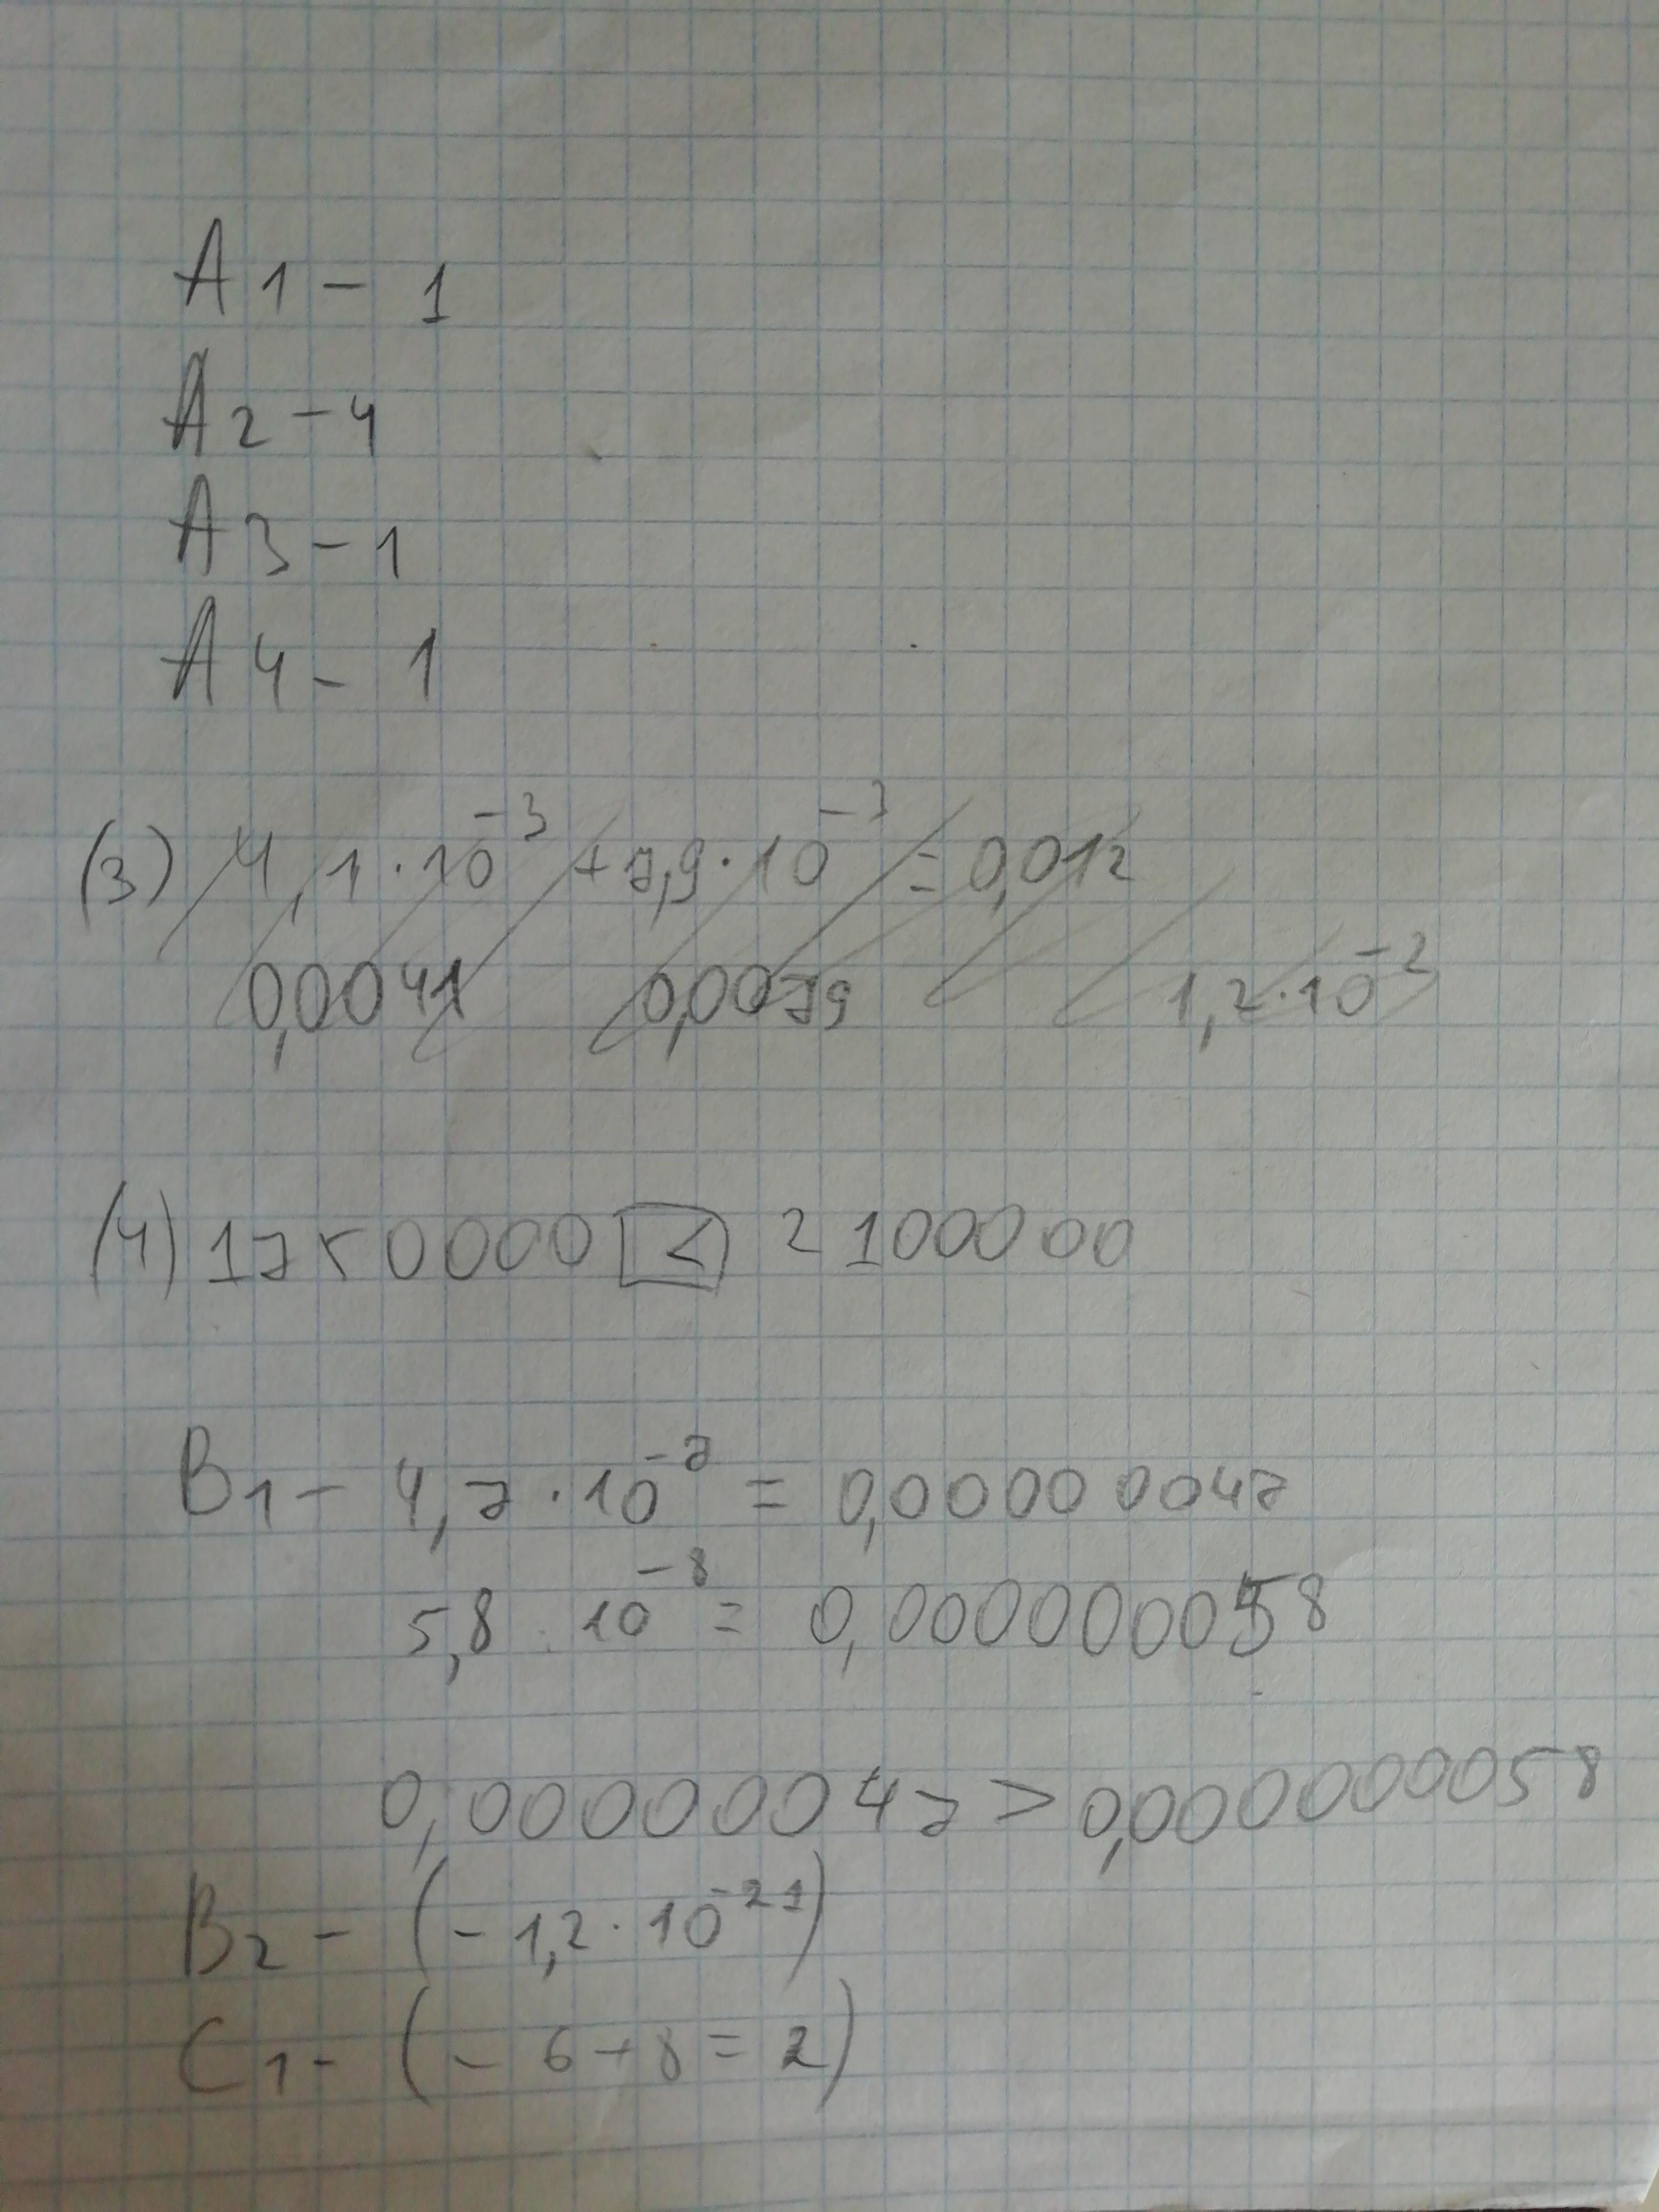 A1 - 1
A2 - 4
A3 - 1
A4 - 1
(3) 4,1 · 10⁻³ + 7,9 · 10⁻³ = 0,012
0,0041 0,0079 1,2 · 10⁻²
(4) 1750000 < 2100000
B1 - 4,7 · 10⁻⁷ = 0,000000047
5,8 · 10⁻⁸ = 0,0000000058
0,00000047 > 0,0000000058
B2 - (-1,2 · 10⁻²¹)
C1 - (-6+8=2)